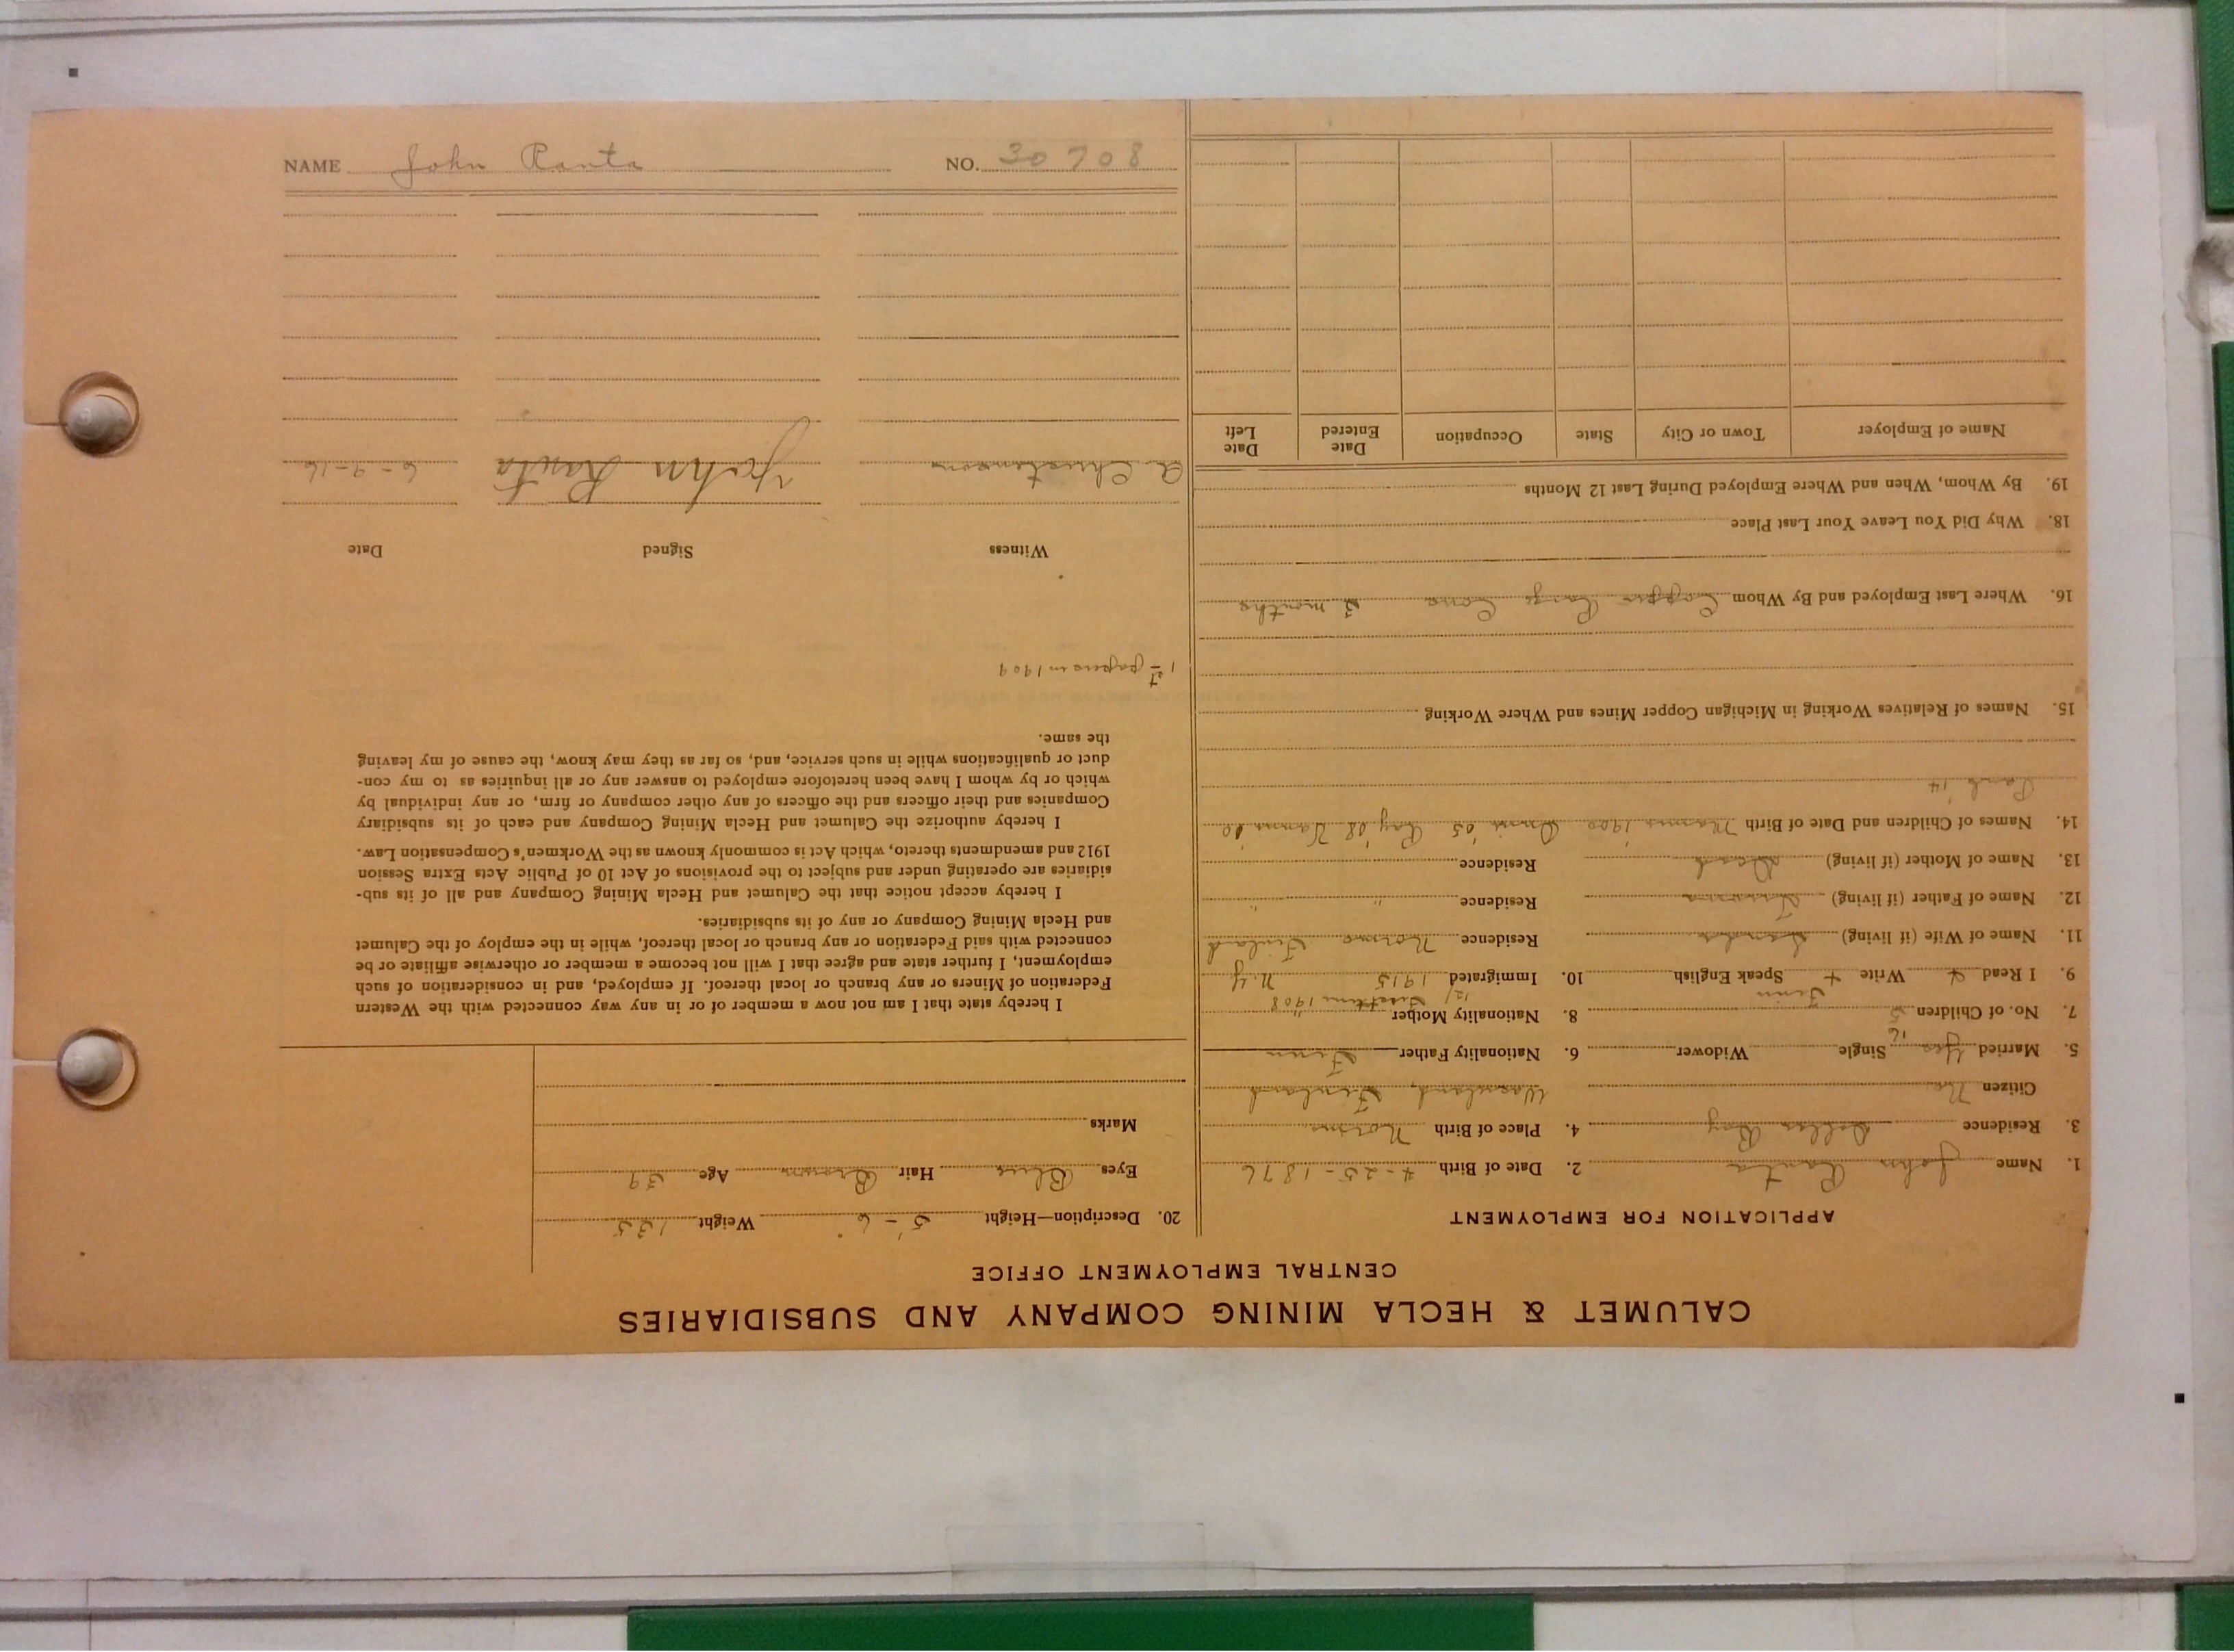 CALUMET & HECLA MINING COMPANY AND SUBSIDIARIES
CENTRAL EMPLOYMENT OFFICE
APPLICATION FOR EMPLOYMENT
1. Name John Ranta 2. Date of Birth 4-25-1876
3. Residence Dollar Bay 4. Place of Birth
Citizen No Finland
5. Married Yes Single Widower 6. Nationality Father Finn
7. No. of Children 5 8. Nationality Mother Finn
First time 1908
9. I Read + Write + Speak English 10. Immigrated 1915 N.Y.
11. Name of Wife (if living) Residence Finland
12. Name of Father (if living) Residence " "
13. Name of Mother (if living) Dead Residence
14. Names of Children and Date of Birth
15. Names of Relatives Working in Michigan Copper Mines and Where Working
16. Where Last Employed and By Whom Copper Range Cons 3 months
18. Why Did You Leave Your Last Place
19. By Whom, When and Where Employed During Last 12 Months
Name of Employer Town or City State Occupation Date Entered Date Left
20. Description—Height 5'-6" Weight 135
Eyes Blue Hair Brown Age 39
Marks
I hereby state that I am not now a member of or in any way connected with the Western
Federation of Miners or any branch or local thereof. If employed, and in consideration of such
employment, I further state and agree that I will not become a member or otherwise affiliate or be
connected with said Federation or any branch or local thereof, while in the employ of the Calumet
and Hecla Mining Company or any of its subsidiaries.
I hereby accept notice that the Calumet and Hecla Mining Company and all of its sub-
sidiaries are operating under and subject to the provisions of Act 10 of Public Acts Extra Session
1912 and amendments thereto, which Act is commonly known as the Workmen's Compensation Law.
I hereby authorize the Calumet and Hecla Mining Company and each of its subsidiary
Companies and their officers and the officers of any other company or firm, or any individual by
which or by whom I have been heretofore employed to answer any or all inquiries as to my con-
duct or qualifications while in such service, and, so far as they may know, the cause of my leaving
the same.
1st papers in 1909
Witness Signed Date
John Ranta 6-9-16
NAME John Ranta NO. 30708